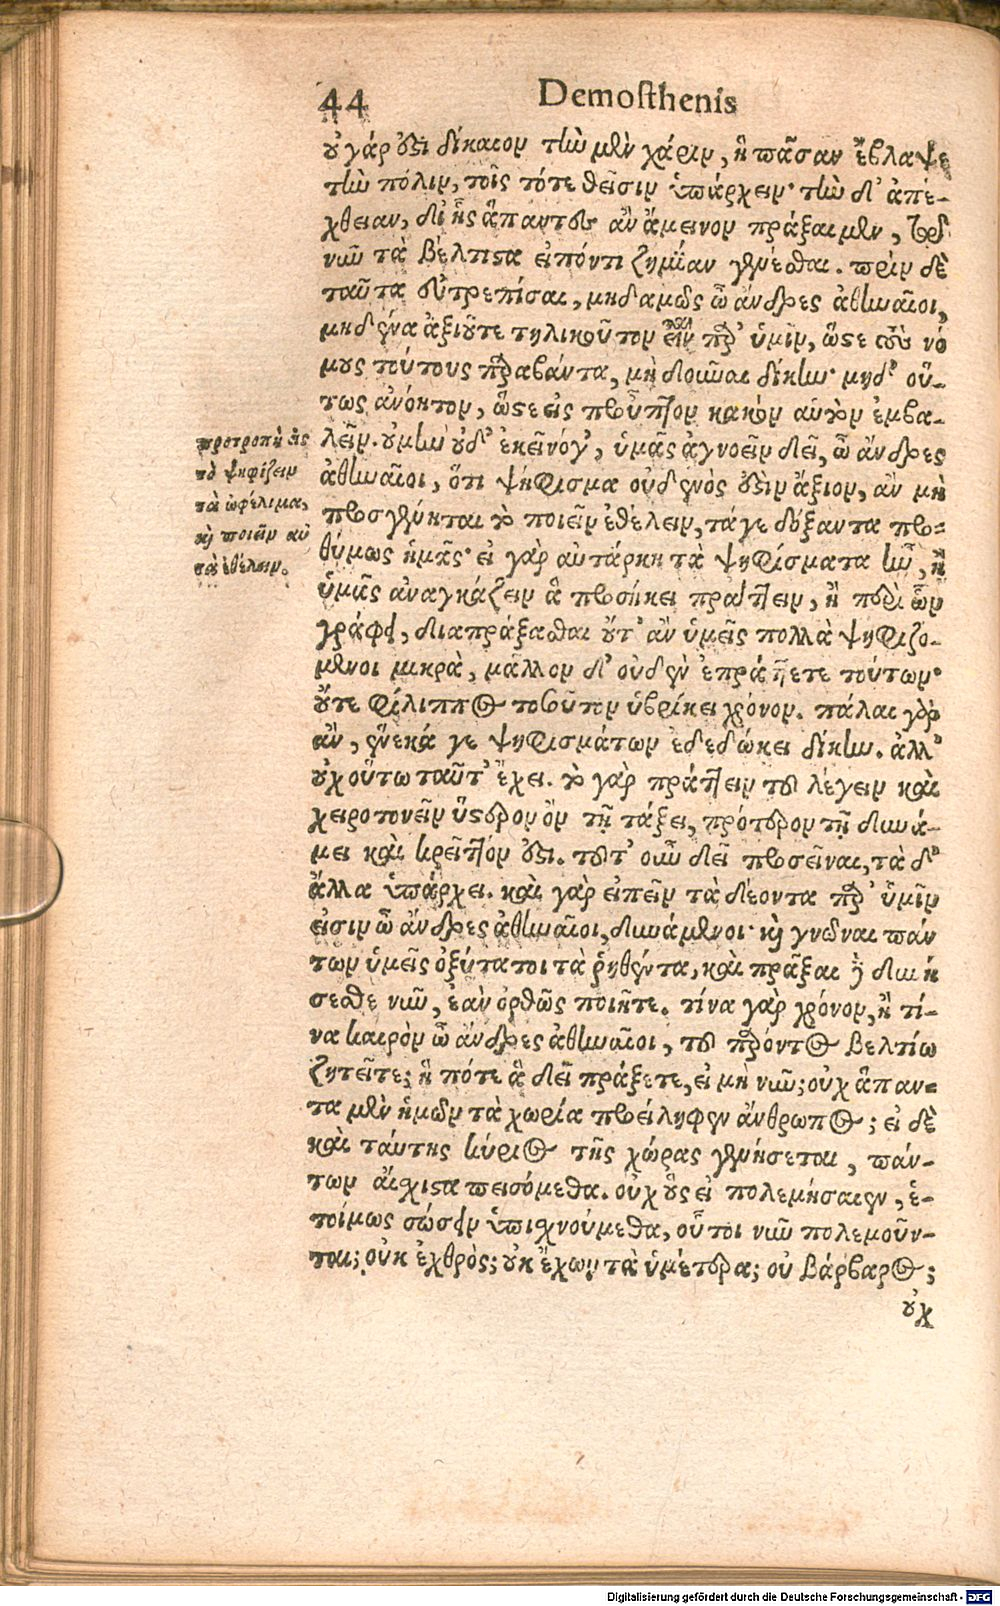 44
Demosthenis
οὐ γάρ ἐστι δίκαιον τὴν μὲν χάριν, ἣ πᾶσαν ἔβλαψε
τὴν πόλιν, τοῖς τότε θεῖσιν ὑπάρχειν· τὴν δ' ἀπέ-
χθειαν, δι' ἧς ἅπαντες ἂν ἄμεινον πράξαιμεν, τῷ
νῦν τὰ βέλτιστα εἰπόντι ζημίαν γενέσθαι. πρὶν δὲ
ταῦτα εὐτρεπίσαι, μηδαμῶς ὦ ἄνδρες ἀθηναῖοι,
μηδένα ἀξιοῦτε τηλικοῦτον εἶναι παρ' ὑμῖν, ὥστε τοὺς νό
μους τούτους παραβάντα, μὴ δοῦναι δίκην· μηδ' οὕ-
τως ἀνόητον, ὥστε εἰς προῦπτον κακὸν αὑτὸν ἐμβα-
λεῖν. οὐ μὴν οὐδ' ἐκεῖνόγ', ὑμᾶς ἀγνοεῖν δεῖ, ὦ ἄνδρες
ἀθηναῖοι, ὅτι ψήφισμα οὐδενὸς ἐστὶν ἄξιον, ἂν μὴ
προσγένηται τὸ ποιεῖν ἐθέλειν, τά γε δόξαντα προ-
θύμως ἡμᾶς· εἰ γὰρ αὐτάρκη τὰ ψηφίσματα ἦν, ἢ
ὑμᾶς ἀναγκάζειν ἃ προσήκει πράττειν, ἢ περὶ ὧν
γράφει, διαπράξασθαι οὔτ' ἂν ὑμεῖς πολλὰ ψηφιζό-
μενοι μικρὰ, μᾶλλον δ' οὐδὲν ἐπράττετε τούτων·
οὔτε Φίλιππος τοσοῦτον ὑβρίκει χρόνον. πάλαι γὰρ
ἂν, ἕνεκά γε ψηφισμάτων ἐδεδώκει δίκην. ἀλλ'
οὐχ οὕτω ταῦτ' ἔχει. τὸ γὰρ πράττειν τοῦ λέγειν καὶ
χειροτονεῖν ὕστερον ὂν τῇ τάξει, πρότερον τῇ δυνά-
μει καὶ κρεῖττον ἐστι. τοῦτ' οὖν δεῖ προσεῖναι, τὰ δ'
ἄλλα ὑπάρχει. καὶ γὰρ εἰπεῖν τὰ δέοντα παρ' ὑμῖν
εἰσιν ὦ ἄνδρες ἀθηναῖοι, δυνάμενοι· καὶ γνῶναι πάν
των ὑμεῖς ὀξύτατοι τὰ ῥηθέντα, καὶ πρᾶξαι δὲ δυνή
σεσθε νῦν, ἐὰν ὀρθῶς ποιῆτε. τίνα γὰρ χρόνον, ἢ τί-
να καιρὸν ὦ ἄνδρες ἀθηναῖοι, τοῦ παρόντος βελτίω
ζητεῖτε; ἢ πότε ἃ δεῖ πράξετε, εἰ μὴ νῦν; οὐχ ἅπαν-
τα μὲν ἡμῶν τὰ χωρία προείληφεν ἄνθρωπος; εἰ δὲ
καὶ ταύτης κύριος τῆς χώρας γενήσεται, πάν-
των αἴσχιστα πεισόμεθα. οὐχ οὓς εἰ πολεμήσαιεν, ἑ-
τοίμως σώσειν ὑπισχνούμεθα, οὗτοι νῦν πολεμοῦν-
ται; οὐκ ἐχθρὸς; οὐκ ἔχων τὰ ὑμέτερα; οὐ βάρβαρος;
οὐχ
προτροπὴ εἰς
τὸ ψηφίζειν
τὰ ὠφέλιμα,
καὶ ποιεῖν αὐ
τὰ ἐθέλειν.
Digitalisierung gefördert durch die Deutsche Forschungsgemeinschaft - DFG